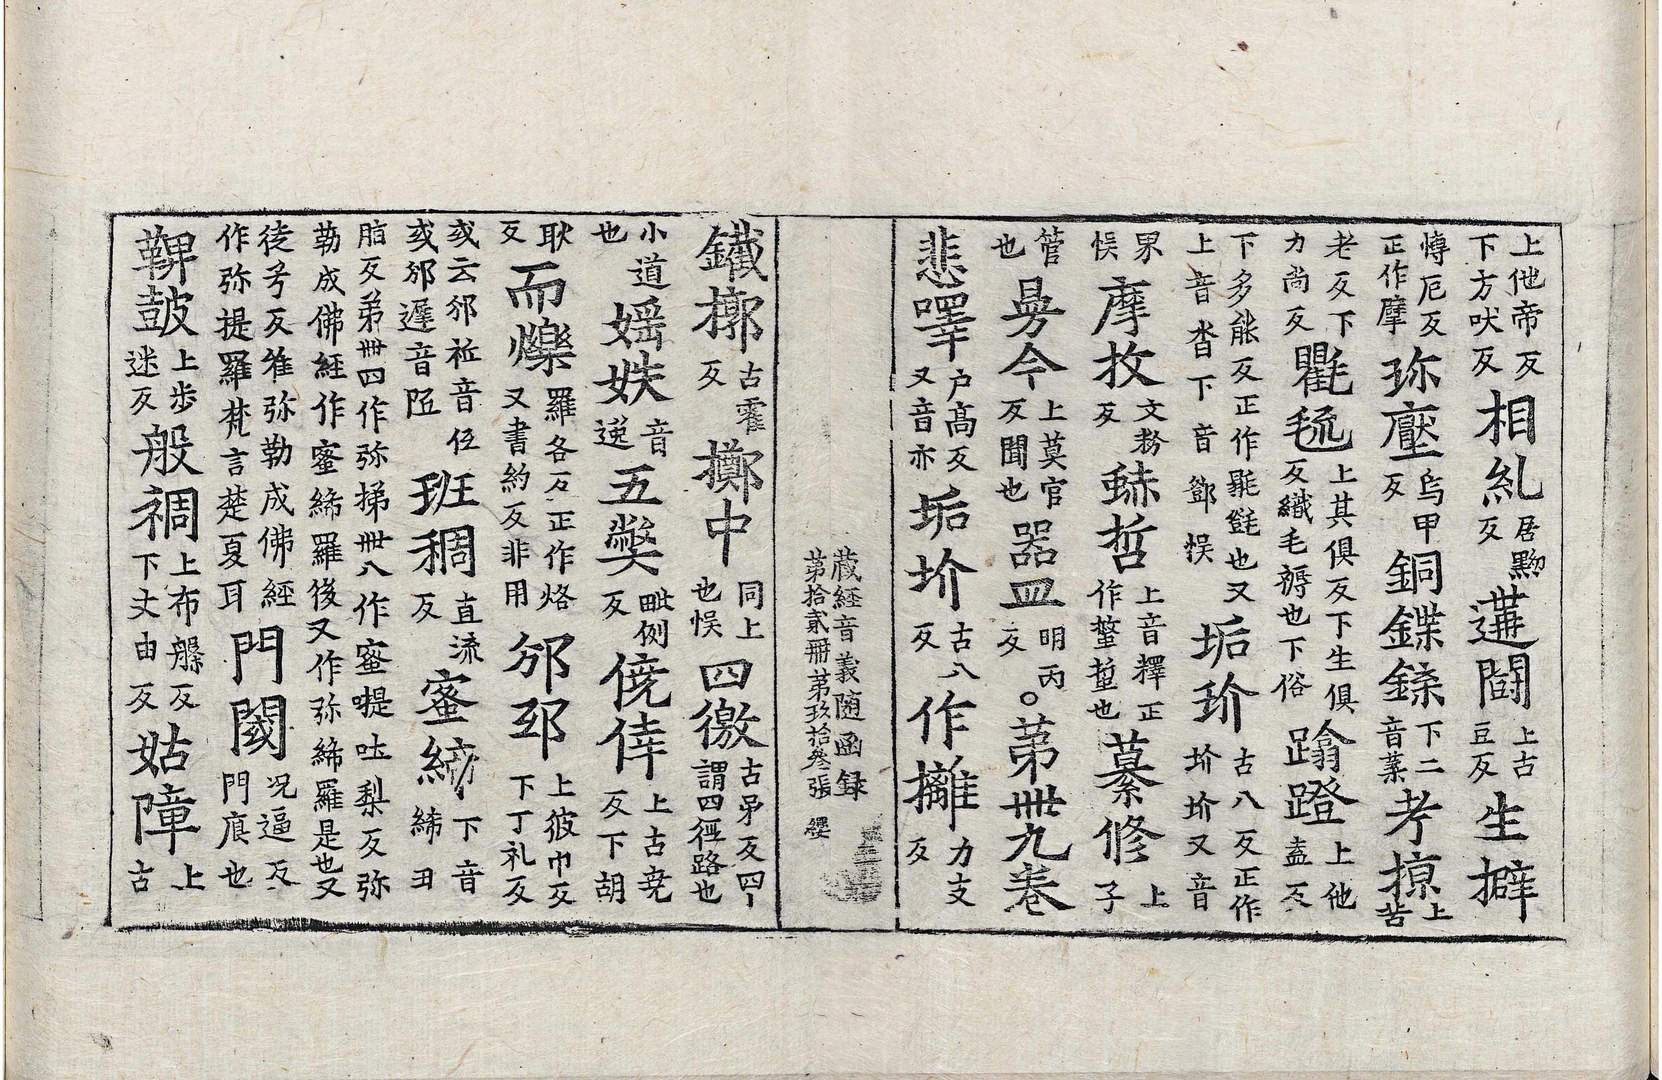 上他帝反下方吠反相糺居黝反𨔛鬪上古豆反生擗
愽厄反正作摩弥壓烏甲反銅鍱鍒下二音葉考掠上苦
老反下力尚反氍毺上其俱反下生俱反織毛褥也下俗蹹蹬上他盍反
下多能反正作毾㲪也又上音沓下音鄧悮垢玠古八反正作圿圿又音
界悮摩抆文務反蛛哲上音釋正作螫蜇也蓦修上子
管也㝵今上莫官反聞也器皿明丙反。苐卌九卷
悲嘷戶髙反又音亦垢圿古八反作攡力支反
藏經音義随函録苐拾貳冊苐玖拾叁張 纓
鐵槨古霍反擲中同上也悮四徼古吊反四徑路也謂四
小道也媱妷音逸五獘毗例反僥倖上古尭反下胡
耿反而爍羅各反正作烙又書約反非用邠邳上彼巾反下丁礼反
或云邠祁音伍或邠遲音陁班稠直流反蜜締下音締丑
脂反苐卌四作弥挮卌八作蜜嗁吐梨反弥勒成佛經作蜜締羅後又作弥締羅是也又
徒兮反准弥勒成佛經作弥提羅梵言楚夏耳門閾况逼反門㡳也
鞞皷上步迷反般裯上布般反下丈由反姑障上古